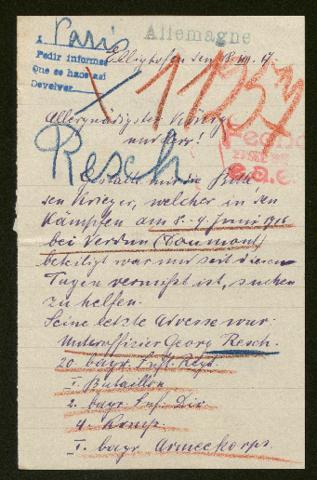 Allemagne
A Paris
Pedir informes
Que se haos así
Devolver
den 18.
1137
Allergnädigster König
und Herr!
Resch
gestatte mir die Bitte
Krieger, welcher in den
Kämpfen am 8-9. Juni 1916
bei Verdun (Douaumont)
beteiligt war und seit diesen
Tagen vermißt ist, suchen
zu helfen.
Seine letzte Adresse war:
Unteroffizier Georg Resch.
20. bayr. Inft. Regt.
I. Bataillon
2. bayr. Inf. Div.
4. Komp.
I. bayr. Armeekorps.